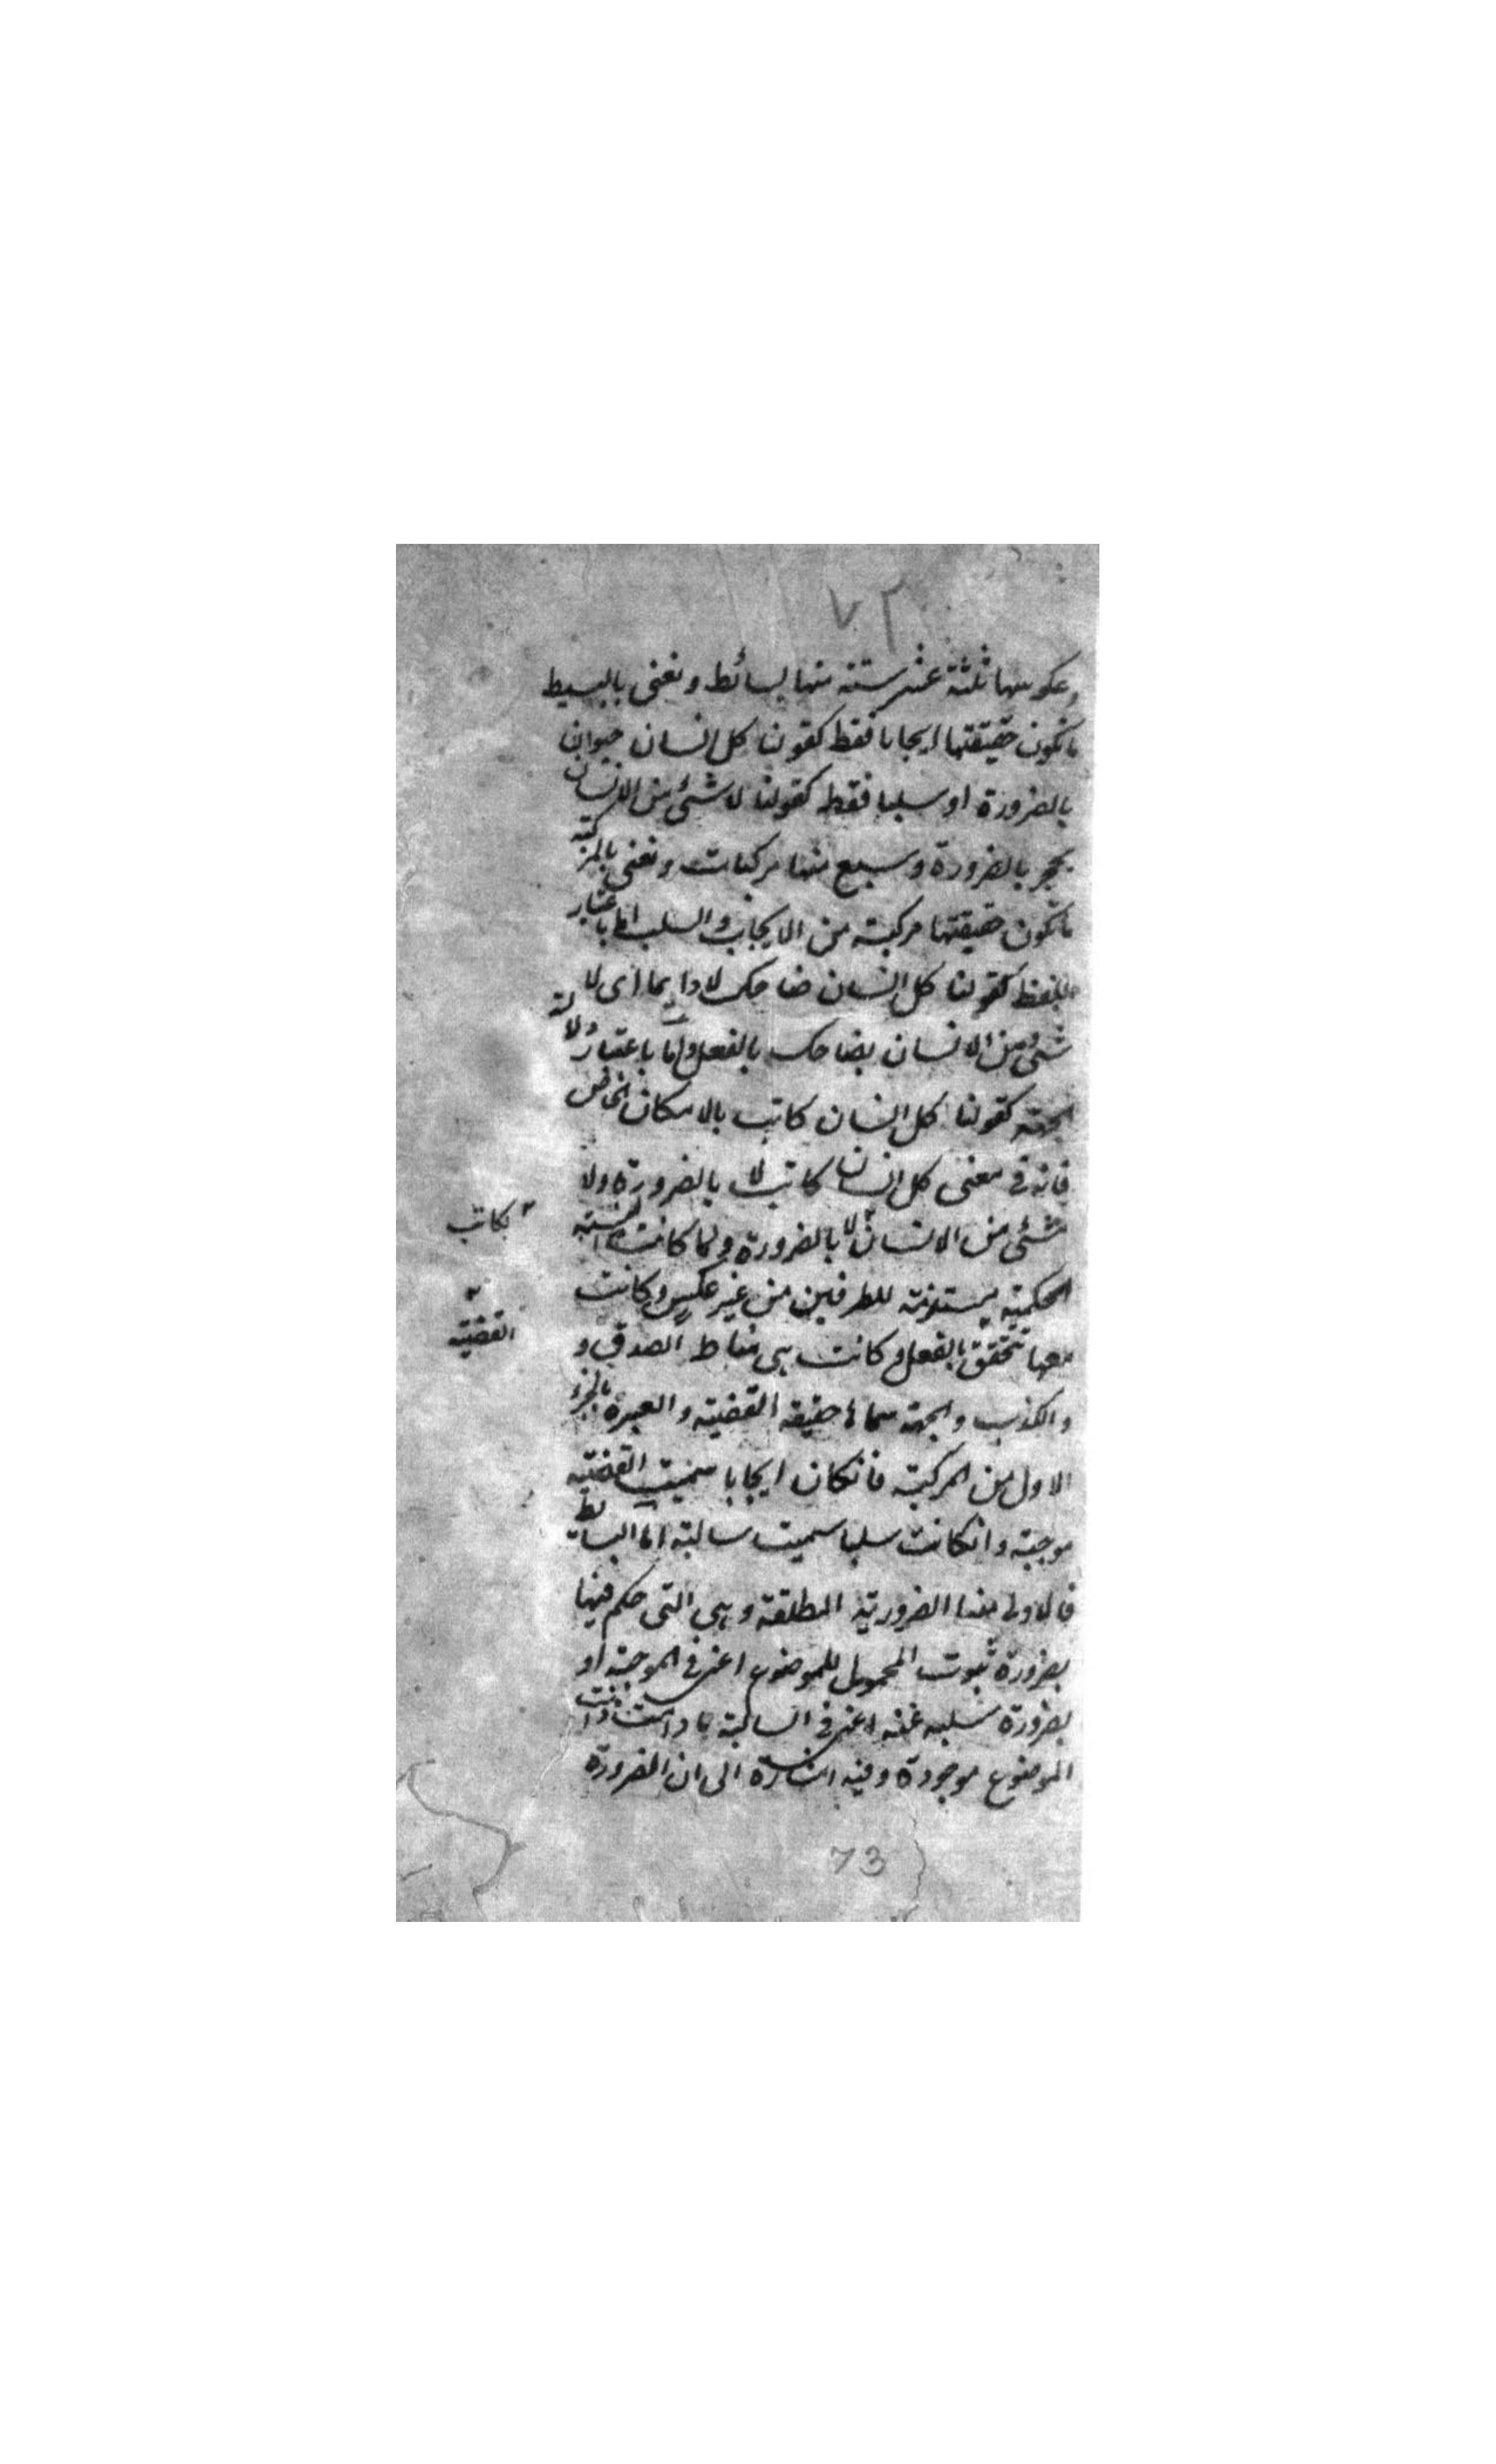 ٧٢
وعكوسها ثلثة عشر ستة منها بسائط ونعنى بالبسيط
ما تكون حقيقتها ايجابا فقط كقولنا كل انسان حيوان
بالضرورة او سلبا فقط كقولنا لا شئ من الانسان
بحجر بالضرورة وسبع منها مركبات ونعنى بالمركبة
ما تكون حقيقتها مركبة من الايجاب والسلب اما باعتبار
اللفظ كقولنا كل انسان ضاحك لا دايما اى لا
شئ من الانسان بضاحك بالفعل واما باعتبار دلالة
الجهة كقولنا كل انسان كاتب بالامكان الخاص
فانه فى معنى كل انسان كاتب لا بالضرورة ولا
شئ من الانسان لا بالضرورة ولما كانت النسبة
بكاتب
الحكمية مستلزمة للطرفين من غير عكس وكانت
معها تتحقق بالفعل وكانت هى مناط الصدق و
القضية
والكذب والجهة سماها حقيقة القضية والعبرة بالجزء
الاول من المركبة فانكان ايجابا سميت القضية
موجبة وانكانت سلبا سميت سالبة اما البسائط
فالاولى منها الضرورية المطلقة وهى التى حكم فيها
بضرورة ثبوت المحمول للموضوع اعنى فى الموجبة او
بضرورة سلبه عنه اعنى فى السالبة ما دامت ذات
الموضوع موجودة وفيه اشارة الى ان الضرورة
73